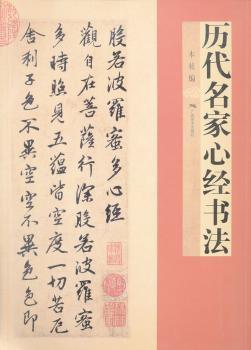 历代名家心经书法
本社 编
般若波羅蜜多心經
觀自在菩薩行深般若波羅蜜
多時照見五蘊皆空度一切苦厄
舍利子色不異空空不異色色即